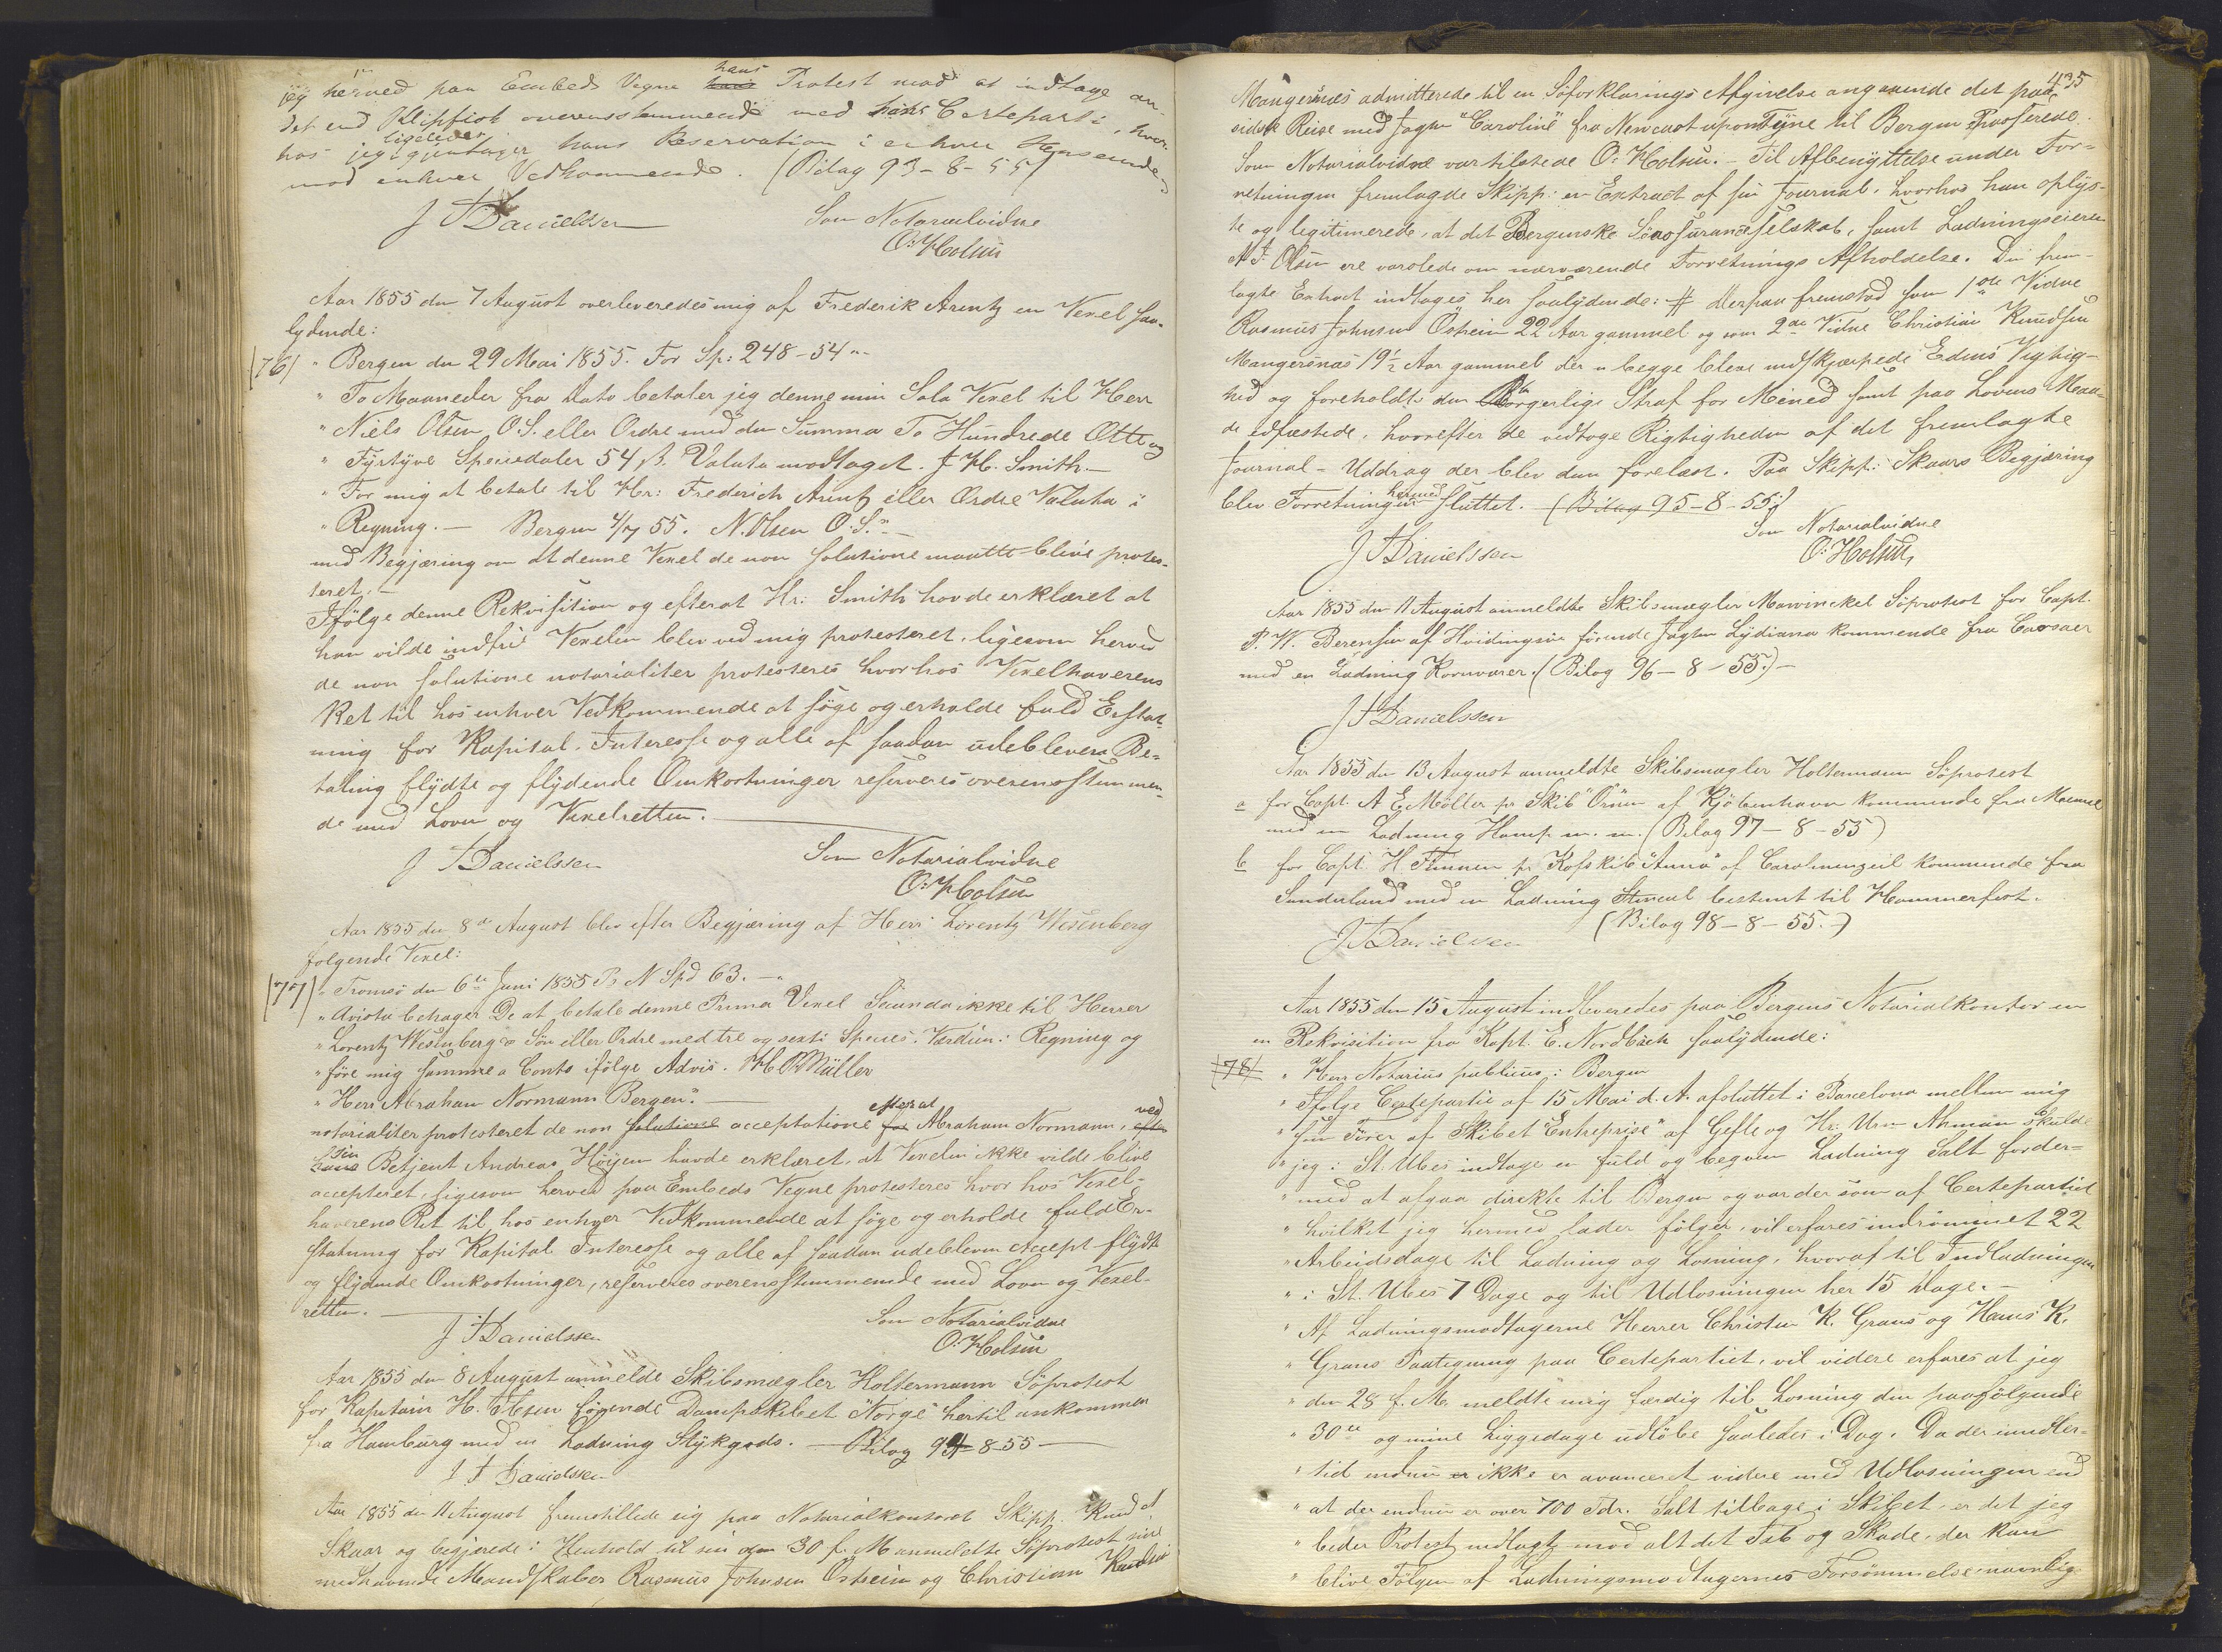 jeg herved paa Embeds Vegne hans Protest mod at indtage an
det end Klipfisk overensstemmende med hans Certeparti, hver-
hos jeg ligeledes gjentager hans Reservation i enhver Henseende
mod enhver Vedkommende. (Bilag 93-8-55)
J J Danielssen Som Notarialvidne
O: Holsen
Aar 1855 den 7 August overleveredes mig af Frederik Arentz en Vexel saa-
lydende:
(76) " Bergen den 29 Mai 1855. For Sp: 248-54 "
" To Maaneder fra Dato betaler jeg denne min Sola Vexel til Herr
" Niels Olsen O.S. eller Ordre med den Summa To Hundrede Otte og
" Fyrtyve Speciedaler 54 ß. Valuta modtaget. J H. Smith.-
" For mig at betale til Hr: Frederich Arentz eller Ordre Valuta i
" Regning. - Bergen 4/7 55. N. Olsen O. S."-
med Begjæring om at denne Vexel de non solutione maatte blive protes-
teret.-
Ifölge denne Rekvisition og efterat Hr: Smith havde erklæret at
han vilde indfri Vexelen blev ved mig protesteret, ligesom herved
de non solutione notarialiter protesteres hvorhos Vexelhaverens
Ret til hos enhver Vedkommende at söge og erholde fuld Erstat-
ning for Kapital, Interesse og alle af saadan udebleven Be-
taling flydte og flydende Omkostninger reserveres overensstemmen-
de med Loven og Vexelretten.
J J Danielssen Som Notarialvidne
O: Holsen
Aar 1855 den 8de August blev efter Begjæring af Herr Lorentz Wesenberg
følgende Vexel:
(77) " Tromsö den 6te Juni 1855 Pr N Spd 63.-"
" Avista behager De at betale denne Prima Vexel Secunda ikke til Herrer
" Lorentz Wesenberg & Sön eller Ordre med tre og sexti Species. Værdien i Regning og
" före mig samme a Conto ifölge Advis. H C Müller
" Herr Abraham Normann Bergen".
notarialiter protesteret de non solutione acceptatione for efterat Abraham Normann, efter ved
hans sin Betjent Andreas Höyem havde erklæret, at Vexelen ikke vilde blive
accepteret, ligesom herved paa Embeds Vegne protesteres hvorhos Vexel-
haverens Ret til hos enhver Vedkommende at söge og erholde fuld Er-
statning for Kapital Interesse og alle af saadan udebleven Accept flydte
og flydende Omkostninger, reserveres overensstemmende med Loven og Vexel-
retten.
J J Danielssen Som Notarialvidne
O: Holsen
Aar 1855 den 8 August anmelde Skibsmægler Holtermann Söprotest
for Kaptain H. Ibsen förende Dampskibet "Norge" hertil ankommen
fra Hamburg med en Ladning Stykgods. - Bilag 94-8-55-
J J Danielssen
Aar 1855 den 11 August fremstillede sig paa Notarialkontoret Skipp: Knud A.
Skaar og begjærede i Henhold til sin den 30 f. M anmeldte Söprotest sine
medhavende Mandskaber Rasmus Johnsen Östrein og Christian Knudsen
435
Mangersnæs admitterede til en Söforklarings Afgivelse angaaende det paa-
sidste Reise med Jagten "Caroline" fra Newcast upon Tyne til Bergen Passerede.
Som Notarialvidne var tilstede O: Holsen.- Til Afbenyttelse under For-
retningen fremlagde Skipp: en Extract af sin Journal, hvorhos han oplys-
te og legitimerede, at det Bergenske Söassuranceselskab, samt Ladningseieren
A J. Olsen ere varslede om nærværende Forretnings Afholdelse. Den frem-
lagte Extract indtages her saalydende: # Derpaa fremstod som 1ste Vidne
Rasmus Johnsen Östrein 22 Aar gammel og som 2det Vidne Christian Knudsen
Mangersnæs 19 1/2 Aar gammel der begge bleve indskjærpede Edens Vigtig-
hed og foreholdte den Borgerlige Straf for Mened samt paa Lovens Maa-
de edfæstede, hvorefter de vedtoge Rigtigheden af det fremlagte
Journal-Uddrag der blev dem forelæst. Paa Skipp: Skaars Begjæring
blev Forretningen hermed sluttet. (Bilag 95-8-55)
J J Danielssen Som Notarialvidne
O: Holsen
Aar 1855 den 11 August anmeldte Skibsmægler Mowinckel Söprotest for Capt.
P. W. Berentsen af Hvidingsöe förende Jagten Lydiana kommende fra Corsaer
med en Ladning Kornvarer. (Bilag 96-8-55.)-
J J Danielssen
Aar 1855 den 13 August anmeldte Skibsmægler Holtermann Söprotest
a for Capt. A E. Möller pr Skib "Örnen" af Kjöbenhavn kommende fra Memel
med en Ladning Hamp m. m. (Bilag 97-8-55)
b for Capt. H. Tinnen pr Kofskib "Anna" af Carolinenzeil kommende fra
Sunderland med en Ladning Steenkul bestemt til Hammerfest.
(Bilag 98-8-55.)
J J Danielssen
Aar 1855 den 15 August indleveredes paa Bergens Notarialkontor en
en Rekvisition fra Kapt. E. Nordbäck saalydende:
(78) " Herr Notarius publicus i Bergen
" Ifolge Certepartie af 15 Mai d. A. afsluttet i Barcelona mellem mig
" som Förer af Skibet "Entreprise" af Gefle og Hr. Urn Ahman skulde
" jeg i St. Ubes indtage en fuld og beqvem Ladning Salt for der-
" med at afgaa direkte til Bergen og var der som af Certepartiet
" hvilket jeg hermed lader fölger, vil erfares indrömmet 22
" Arbeidsdage til Ladning og Losning, hvoraf til Indladningen
" i St. Ubes 7 Dage og til Udlosningen her 15 Dage.-
" Af Ladningsmodtagerne Herrer Christen K. Grans og Hans K.
" Grans Paategning paa Certepartiet, vil videre erfares at jeg
" den 28 f. M. meldte mig færdig til Losning den paafölgende
" 30te og mine Liggedage udlöbe saaledes i Dag. Da der imidler-
" tid endnu er ikke er avanceret videre med Udlosningen end
" at der endnu er over 700 Tdr. Salt tilbage i Skibet, er det jeg
" beder Protest indlagt mod alt det Tab og Skade, der kan
" blive Fölgen af Ladningsmodtagernes Forsömmelse navnlig